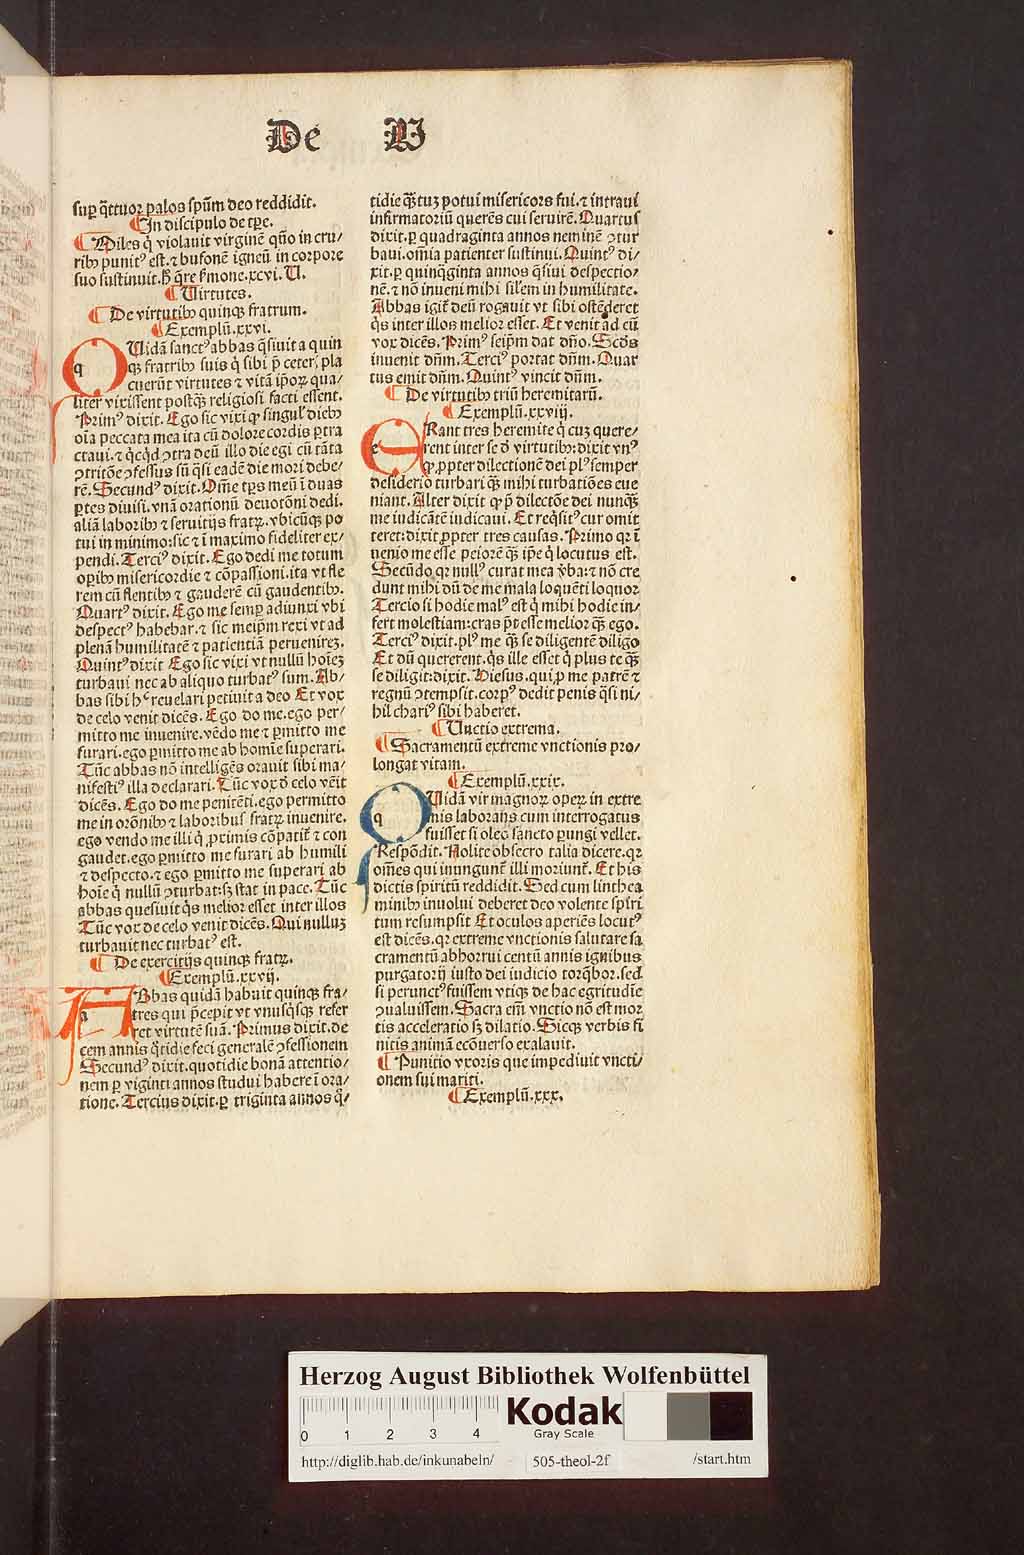 De V
sup̲ q̈ttuor palos spu̅m deo reddidit.
¶ In discipulo de tp̅e.
¶ Miles q̇ violauit virgine̅ qn̅o in cru/
rib⁹ punit⁹ est. ⁊ bufone̅ igneu̅ in corpore
suo sustinuit. ħ q̅re s̅mone. xcvi. U.
¶ Uirtutes.
¶ De virtutib⁹ quinqꝫ fratrum.
¶ Exemplu̅. xxvi.
QUida̅ sanct⁹ abbas q̈siuit a quin
qꝫ fratrib⁹ suis q̇ sibi p̅ ceter̛ pla
cueru̅t virtutes ⁊ vita̅ ip̅oꝝ qua/
liter vixissent postq̅ꝫ religiosi facti essent.
Prim⁹ dixit. Ego sic vixi ꝙ singul̛ dieb⁹
oi̅a peccata mea ita cu̅ dolore cordis p̲tra
ctaui. ⁊ q̇cq̇d ꝯtra deu̅ illo die egi cu̅ ta̅ta
ꝯtrito̅e ꝯfessus su̅ q̈si eade̅ die mori debe/
re̅. Secund⁹ dixit. Om̅e tp̅s meu̅ i̅ duas
p̲tes diuisi. vna̅ orationu̅ deuoto̅ni dedi.
alia̅ laborib⁹ ⁊ seruitijs fratꝝ. vbicu̅qꝫ po
tui in minimo: sic ⁊ i̅ maximo fideliter ex/
pendi. Terci⁹ dixit. Ego dedi me totum
op̲ib⁹ misericordie ⁊ co̅passioni. ita vt fle
rem cu̅ flentib⁹ ⁊ gaudere̅ cu̅ gaudentib⁹.
Quart⁹ dixit. Ego me semp̲ adiunxi vbi
despect⁹ habebar. ⁊ sic meip̅m rexi vt ad
plena̅ humilitate̅ ⁊ patientia̅ peruenireꝫ.
Quint⁹ dixit Ego sic vixi vt nullu̅ ho̅ieꝫ
turbaui nec ab aliquo turbat⁹ sum. Ab/
bas sibi hᶜ reuelari petiuit a deo Et vox
de celo venit dice̅s. Ego do me. ego per/
mitto me inuenire. ve̅do me ⁊ p̲mitto me
furari. ego p̲mitto me ab homi̅e superari.
Tu̅c abbas no̅ intellige̅s orauit sibi ma/
nifesti⁹ illa declarari. Tu̅c vox d̅ celo ve̅it
dice̅s. Ego do me penite̅ti. ego permitto
me in oro̅nib⁹ ⁊ laboribus fratꝝ inuenire.
ego vendo me illi q̇ ꝓximis co̅patit̛ ⁊ con
gaudet. ego p̲mitto me furari ab humili
⁊ despecto. ⁊ ego p̲mitto me superari ab
ho̅ie q̇ nullu̅ ꝯturbat: sꝫ stat in pace. Tu̅c
abbas quesiuit q̇s melior esset inter illos
Tu̅c vox de celo venit dice̅s. Qui nulluꝫ
turbauit nec turbat⁹ est.
¶ De exercitijs quinqꝫ fratꝝ.
¶ Exemplu̅. xxvij.
ABbas quida̅ habuit quinqꝫ fra/
tres qui p̅cepit vt vnusq̇sqꝫ refer
ret virtute̅ sua̅. Primus dixit. de
cem annis q̈tidie feci generale̅ ꝯfessionem
Secund⁹ dixit. quotidie bona̅ attentio/
nem p̲ viginti annos studui habere i̅ ora/
tione. Tercius dixit. p̲ triginta annos q̈/
tidie q̅ꝫtuꝫ potui misericors fui. ⁊ intraui
infirmatoriu̅ quere̅s cui seruire̅. Quartus
dixit. p̲ quadraginta annos nemine̅ ꝯtur
baui. omnia patienter sustinui. Quint⁹ di/
xit. p̲ quinq̈ginta annos q̈siui despectio/
ne̅. ⁊ no̅ inueni mihi sil̅em in humilitate.
Abbas igit̛ deu̅ rogauit vt sibi oste̅deret
q̇s inter illos melior esset. Et venit ad eu̅
vox dice̅s. Prim⁹ seip̅m dat dn̅o. Scd̅s
inuenit dn̅m. Terci⁹ portat dn̅m. Quar
tus emit dn̅m. Quint⁹ vincit dn̅m.
¶ De virtutib⁹ triu̅ heremitaru̅.
¶ Exemplu̅. xxviij.
ERant tres heremite q̇ cuꝫ quere/
rent inter se d̅ virtutib⁹: dixit vn⁹
ꝙ ꝓpter dilectione̅ dei pl⁹ semper
desiderio turbari q̅ꝫ mihi turbatio̅es eue
niant. Alter dixit ꝙ p̅ dilecto̅e dei nunq̅ꝫ
me iudica̅te̅ iudicaui. Et req̇sit⁹ cur omit
teret: dixit ꝓpter tres causas. Primo qꝛ i̅
uenio me esse peiore̅ q̅ꝫ ip̅e q̇ locutus est.
Secu̅do qꝛ null⁹ curat mea v̛ba: ⁊ no̅ cre
dunt mihi du̅ de me mala loque̅ti loquor
Tercio si hodie mal⁹ est q̇ mihi hodie in/
fert molestiam: cras p̅t esse melior q̅ꝫ ego.
Terci⁹ dixit. pl⁹ me q̅ꝫ se diligente̅ diligo
Et du̅ quererent. q̇s ille esset q̇ plus te q̅ꝫ
se diligit: dixit. Hiesus. qui ꝓ me patre̅ ⁊
regnu̅ ꝯtempsit. corp⁹ dedit penis q̈si ni/
hil chari⁹ sibi haberet.
¶ Unctio extrema.
¶ Sacramentu̅ extreme vnctionis pro/
longat vitam.
¶ Exemplu̅. xxix.
QUida̅ vir magnoꝝ opeꝝ in extre
mis laborans cum interrogatus
fuisset si oleo sancto p̲ungi vellet.
Respo̅dit. Nolite obsecro talia dicere. qꝛ
om̅es qui inungunt̛ illi moriunt̛. Et his
dictis spiritu̅ reddidit. Sed cum linthea
minib⁹ inuolui deberet deo volente spi̅ri
tum resumpsit Et oculos aperie̅s locut⁹
est dice̅s. qꝛ extreme vnctionis salutare sa
cramentu̅ abhorrui centu̅ annis ignibus
purgatorij iusto dei iudicio torq̅bor. sed
si perunct⁹ fuissem vtiqꝫ de hac egritudi̅e
ꝯualuissem. Sacra em̅ vnctio no̅ est mor
tis acceleratio sꝫ dilatio. Sicqꝫ verbis fi
nitis anima̅ eco̅uerso exalauit.
¶ Punitio vxoris que impediuit vncti/
onem sui mariti.
¶ Exemplu̅. xxx.
Herzog August Bibliothek Wolfenbüttel
0 1 2 3 4
Kodak
Gray Scale
http://diglib.hab.de/inkunabeln/ 505-theol-2f /start.htm